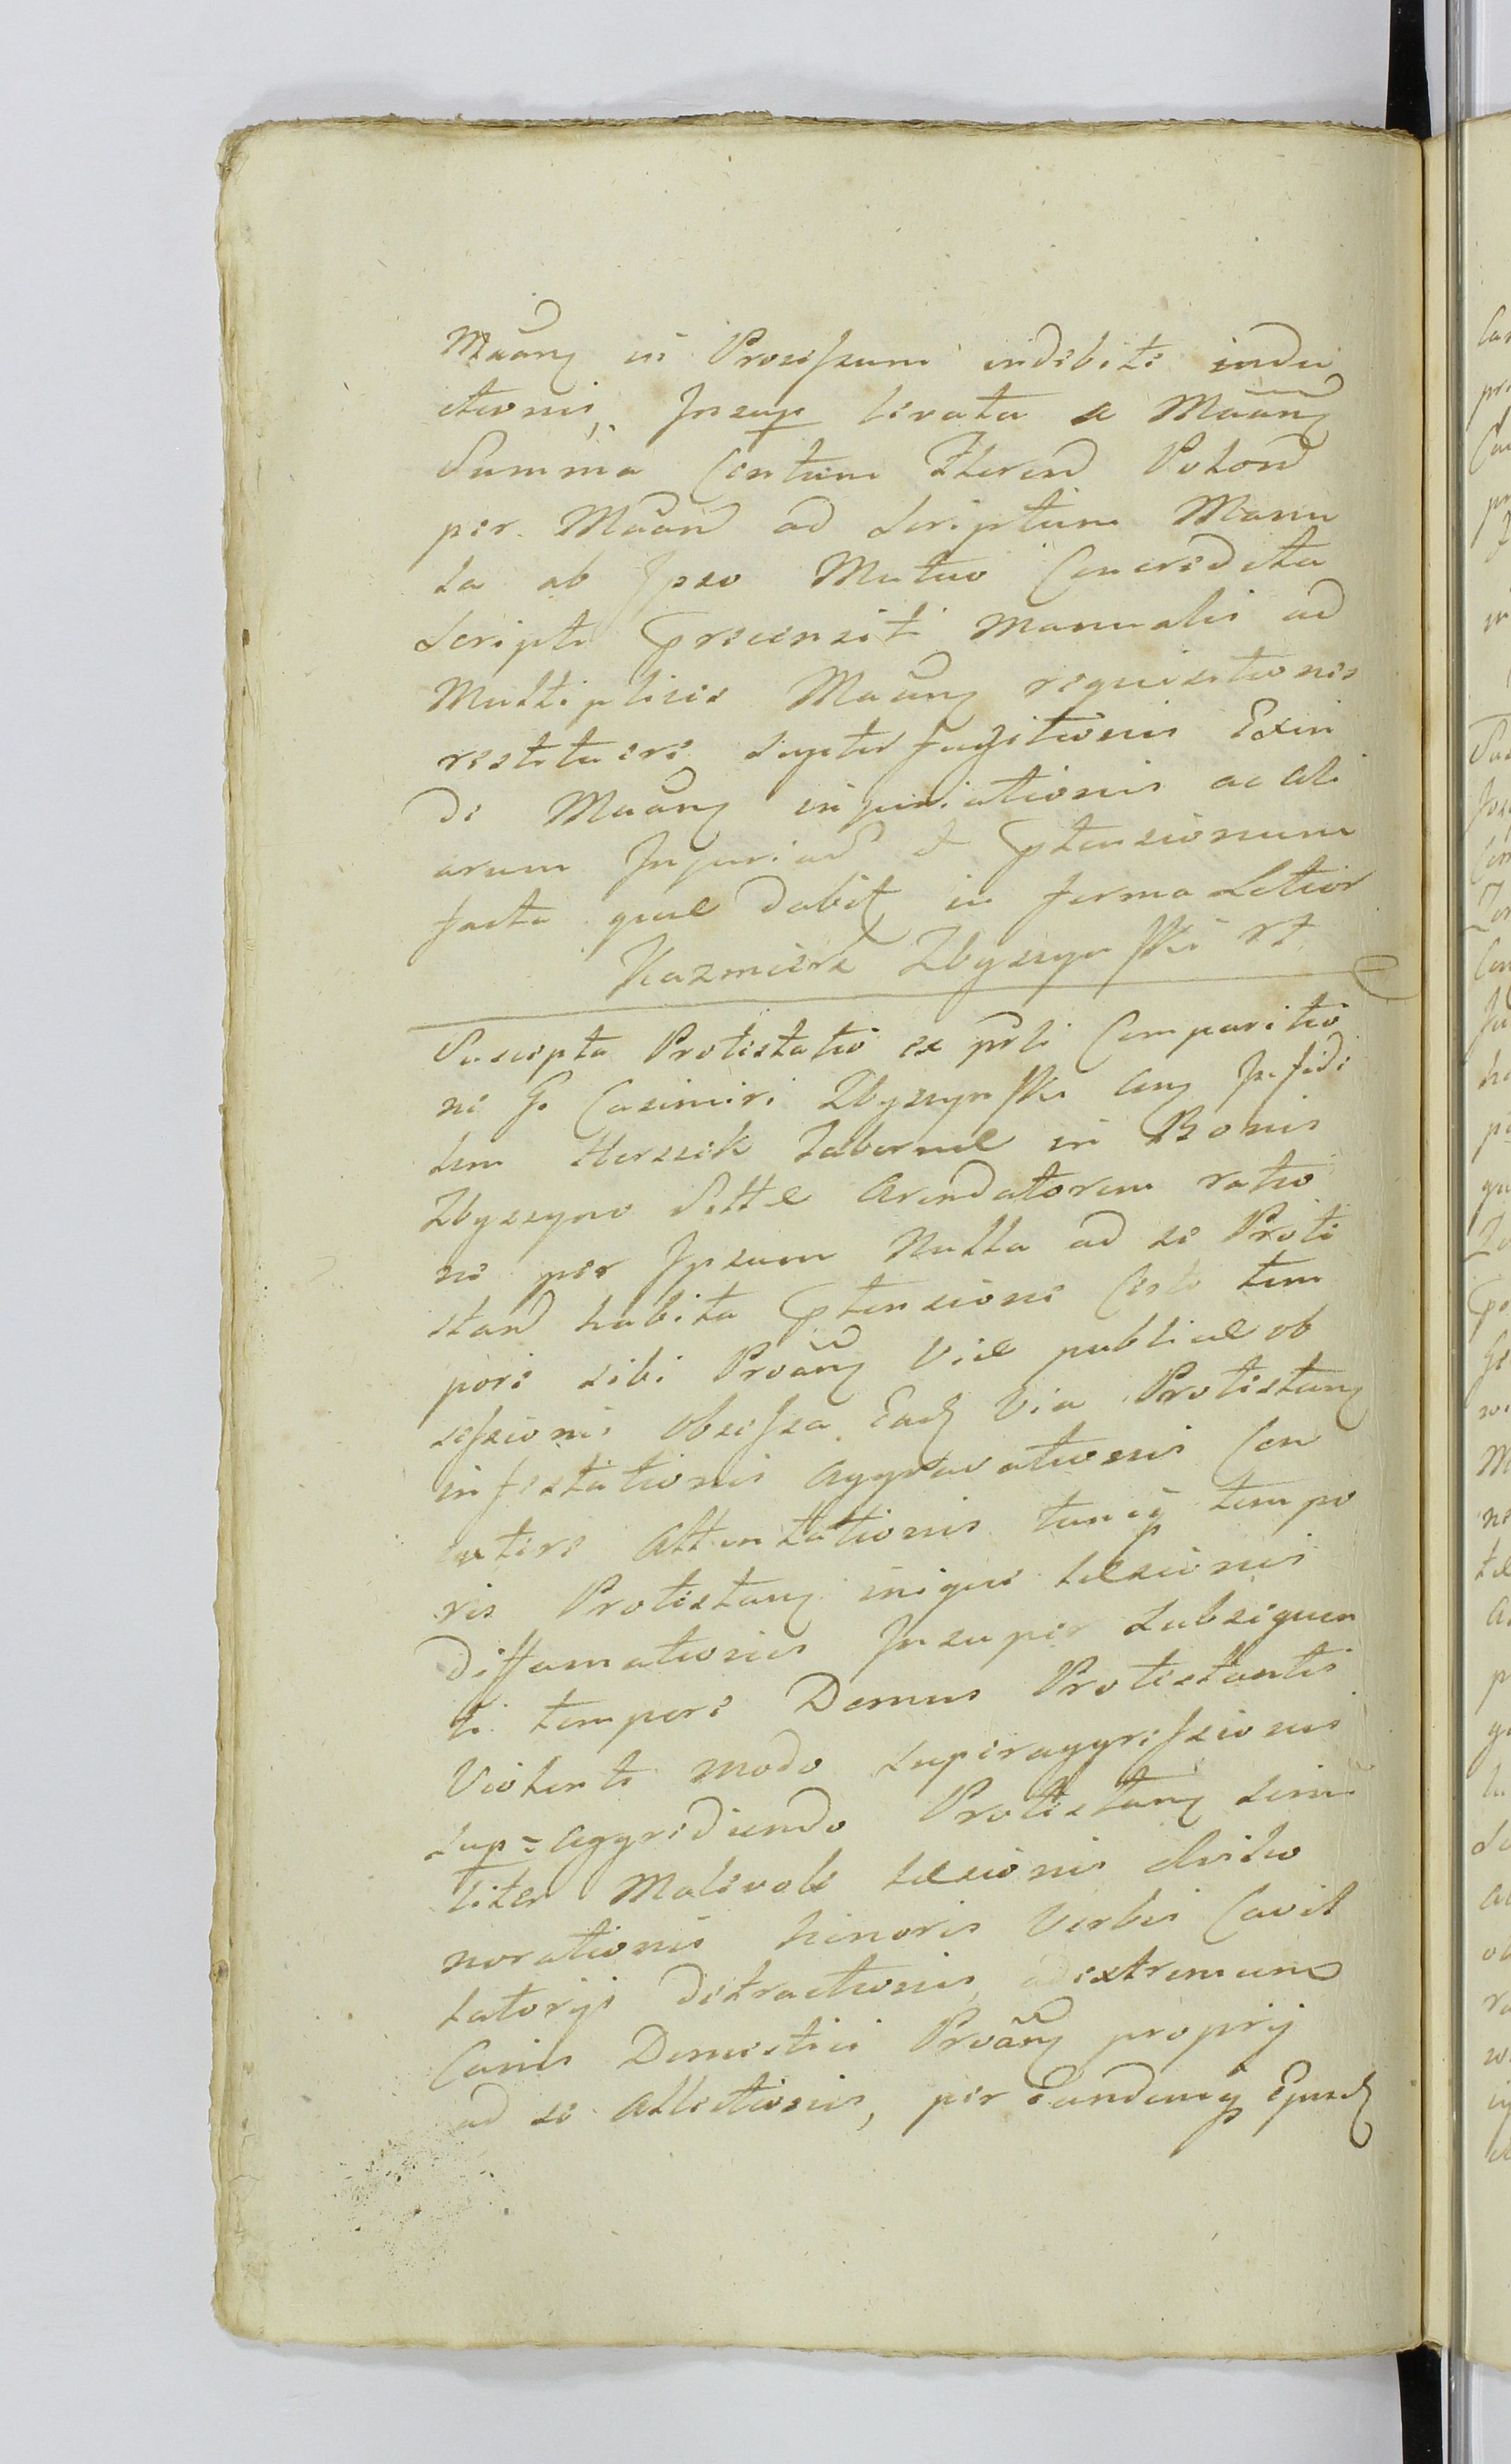 Māāny in Processum indebite indu
ctionis, Insup levata a Māāny
Summa Centum Florend Polond
per Māand ad Scriptum Manu
la ab Ipso Mutuo Concredita
Scripti precensiti Manualis ad
Multiplices Māāny requisitiones
restituere, Supterfugitionis Exin
de Māāny injuriationis ac ali
arum Injuriard et ptensionum
facta quae dabit in forma Latior
Kazmierz Zbyszynski rt
Suscepta Protestatio ex prti Comparitio
ne G. Casimiri Zbyszynski Cnq Infide
lem Herszek Tabernae in Bonis
Zbyszyno Sittae Arendatorem ratio
ne per Ipsum Nulla ad se Prote
stand habita ptensione Certo tem
pore sibi Proāny Viae publicae ob
sessionis Obsessa Eadq Via Protestany
infestationis aggravationis Con
cutere Attentationis tuncq tempo
ris Protestany inique laesionis
Diffamationis Insuper Subsequen
ti tempore Domus Protestantis
Violenti modo superaggressionis
Sup=aggrediendo Protestany simi
liter Malevole laesionis deho
norationis honoris Verbis Cavil
latorys detractionis, ad extremum
Canis Domestici Proāny propry
ad se Allectionis, per Eandemq Ejusdq